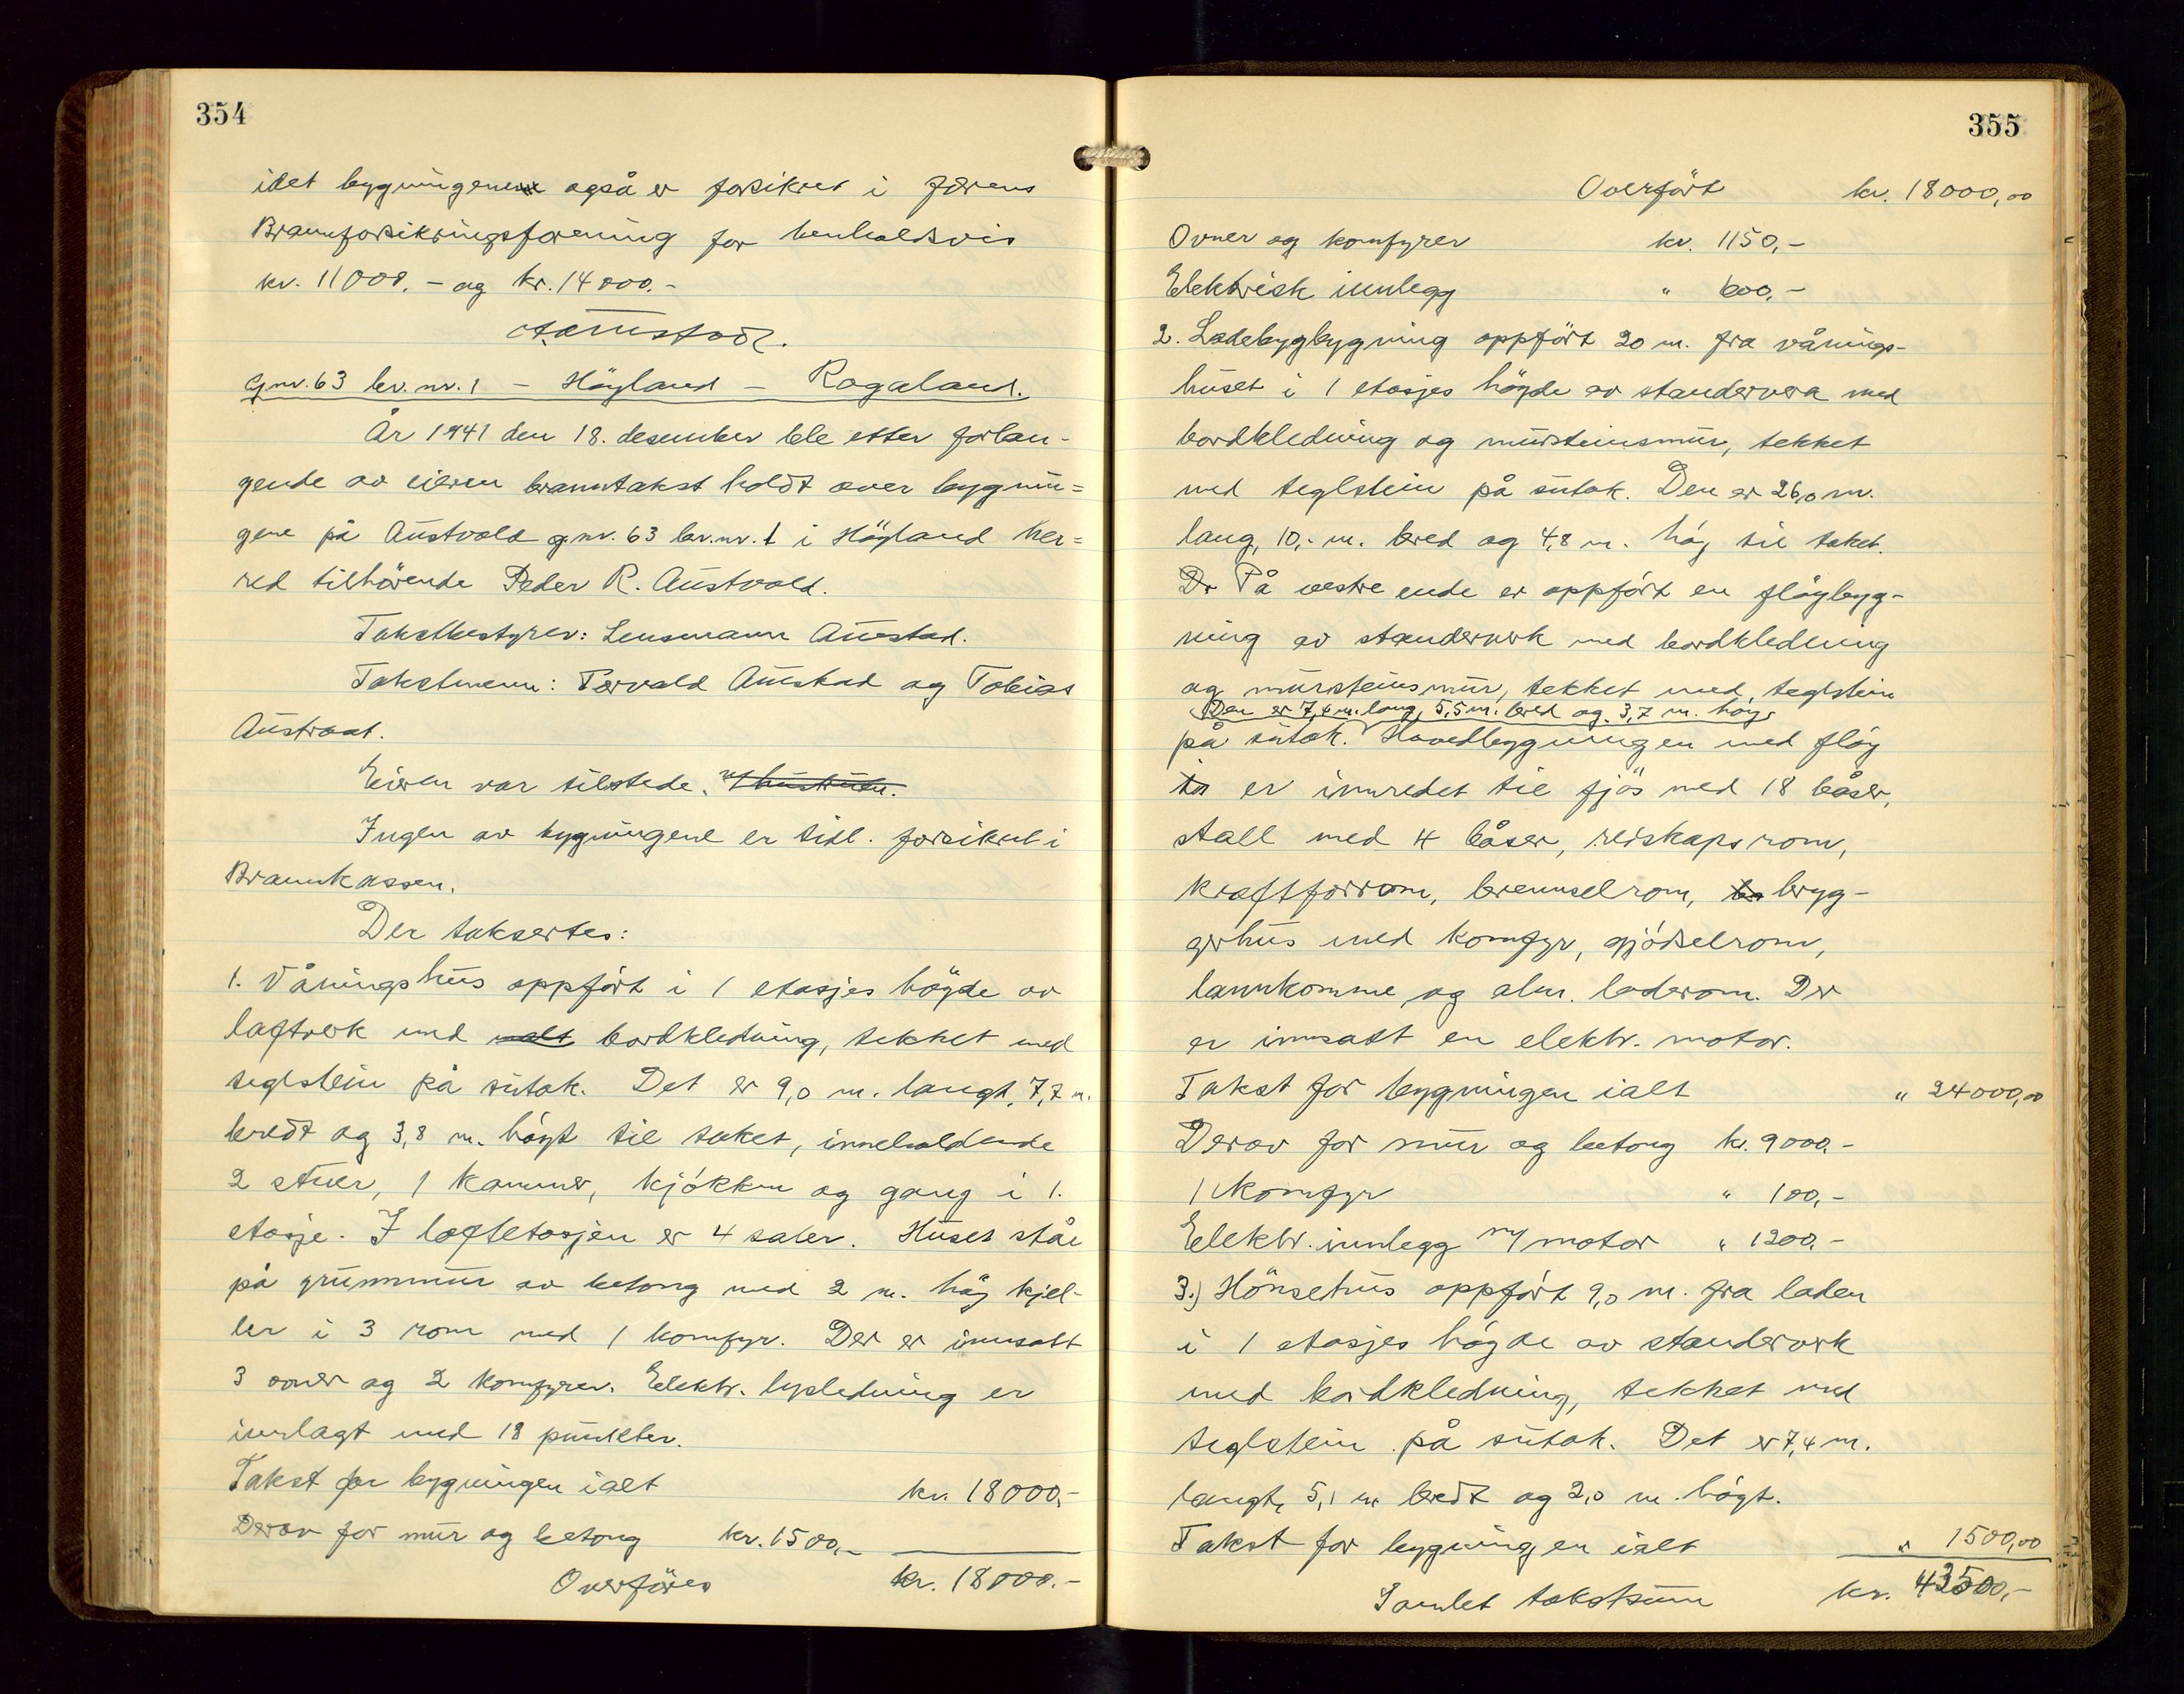 354
idet bygningene også er forsikret i Jærens
Brannforsikringsforening for henholdsvis
kr. 11000.- og kr. 14000.-
Aamstad.
Gnr. 63 br.nr. 1 - Höyland - Rogaland.
År 1941 den 18. desember ble etter forlan-
gende av eieren branntakst holdt over bygnin=
gene på Austvold gnr. 63 br.nr. 1 i Höyland her=
red tilhörende Peder R. Austvold.
Takstbestyrer: Lensmann Aamstad.
Takstmenn: Torvald Aamstad og Tobias
Austraat.
Eieren var tilstede.
Ingen av bygningene er tidl. forsikret i
Brannkassen.
Der taksertes:
1. Våningshus oppfört i 1 etasjes höyde av
laftverk med malt bordkledning, tekket med
teglstein på sutak. Det er 9,0 m. langt, 7,7 m.
bredt og 3,8 m. höyt til taket, inneholdende
2 stuer, 1 kammer, kjökken og gang i 1.
etasje. I loftetasjen er 4 saler. Huset står
på grunnmur av betong med 2 m. höy kjel-
ler i 3 rom med 1 komfyr. Der er innsatt
3 ovner og 2 komfyrer. Elektr. lysledning er
innlagt med 18 punkter.
Takst for bygningen ialt kr. 18000,-
Derav for mur og betong kr. 1500,-
Overföres kr. 18000.-
355
Overfört kr. 18000,00
Ovner og komfyrer kr. 1150,-
Elektrisk innlegg " 600,-
2. Ladebygbygning oppfört 20 m. fra vånings-
huset i 1 etasjes höyde av standerverk med
bordkledning og mursteinsmur, tekket
med teglstein på sutak. Den er 26,0 m.
lang, 10,- m. bred og 4,8 m. höy til taket.
På vestre ende er oppfört en flöybyg-
ning av standerverk med bordkledning
og mursteinsmur, tekket med teglstein
Den er 7,4 m. lang, 5,5 m. bred og 3,7 m. höy.
på sutak. Hovedbygningen med flöy
er innredet til fjös med 18 båser,
stall med 4 båser, reiskapsrom,
kraftforrom, brennselrom, bryg-
gerhus med komfyr, gjödselrom,
lannkomme og alm. laderom. Der
er innsatt en elektr. motor.
Takst for bygningen ialt " 24000,00
Derav for mur og betong kr. 9000.-
1 komfyr " 100,-
Elektr. innlegg m/motor " 1200.-
3.) Hönsehus oppfört 9,0 m. fra laden
i 1 etasjes höyde av standerverk
med bordkledning, tekket med
teglstein på sutak. Det er 7,4 m.
langt, 5,1 m bredt og 2,0 m. höyt.
Takst for bygningen ialt " 1500,00
Samlet takstsum kr. 43500,-